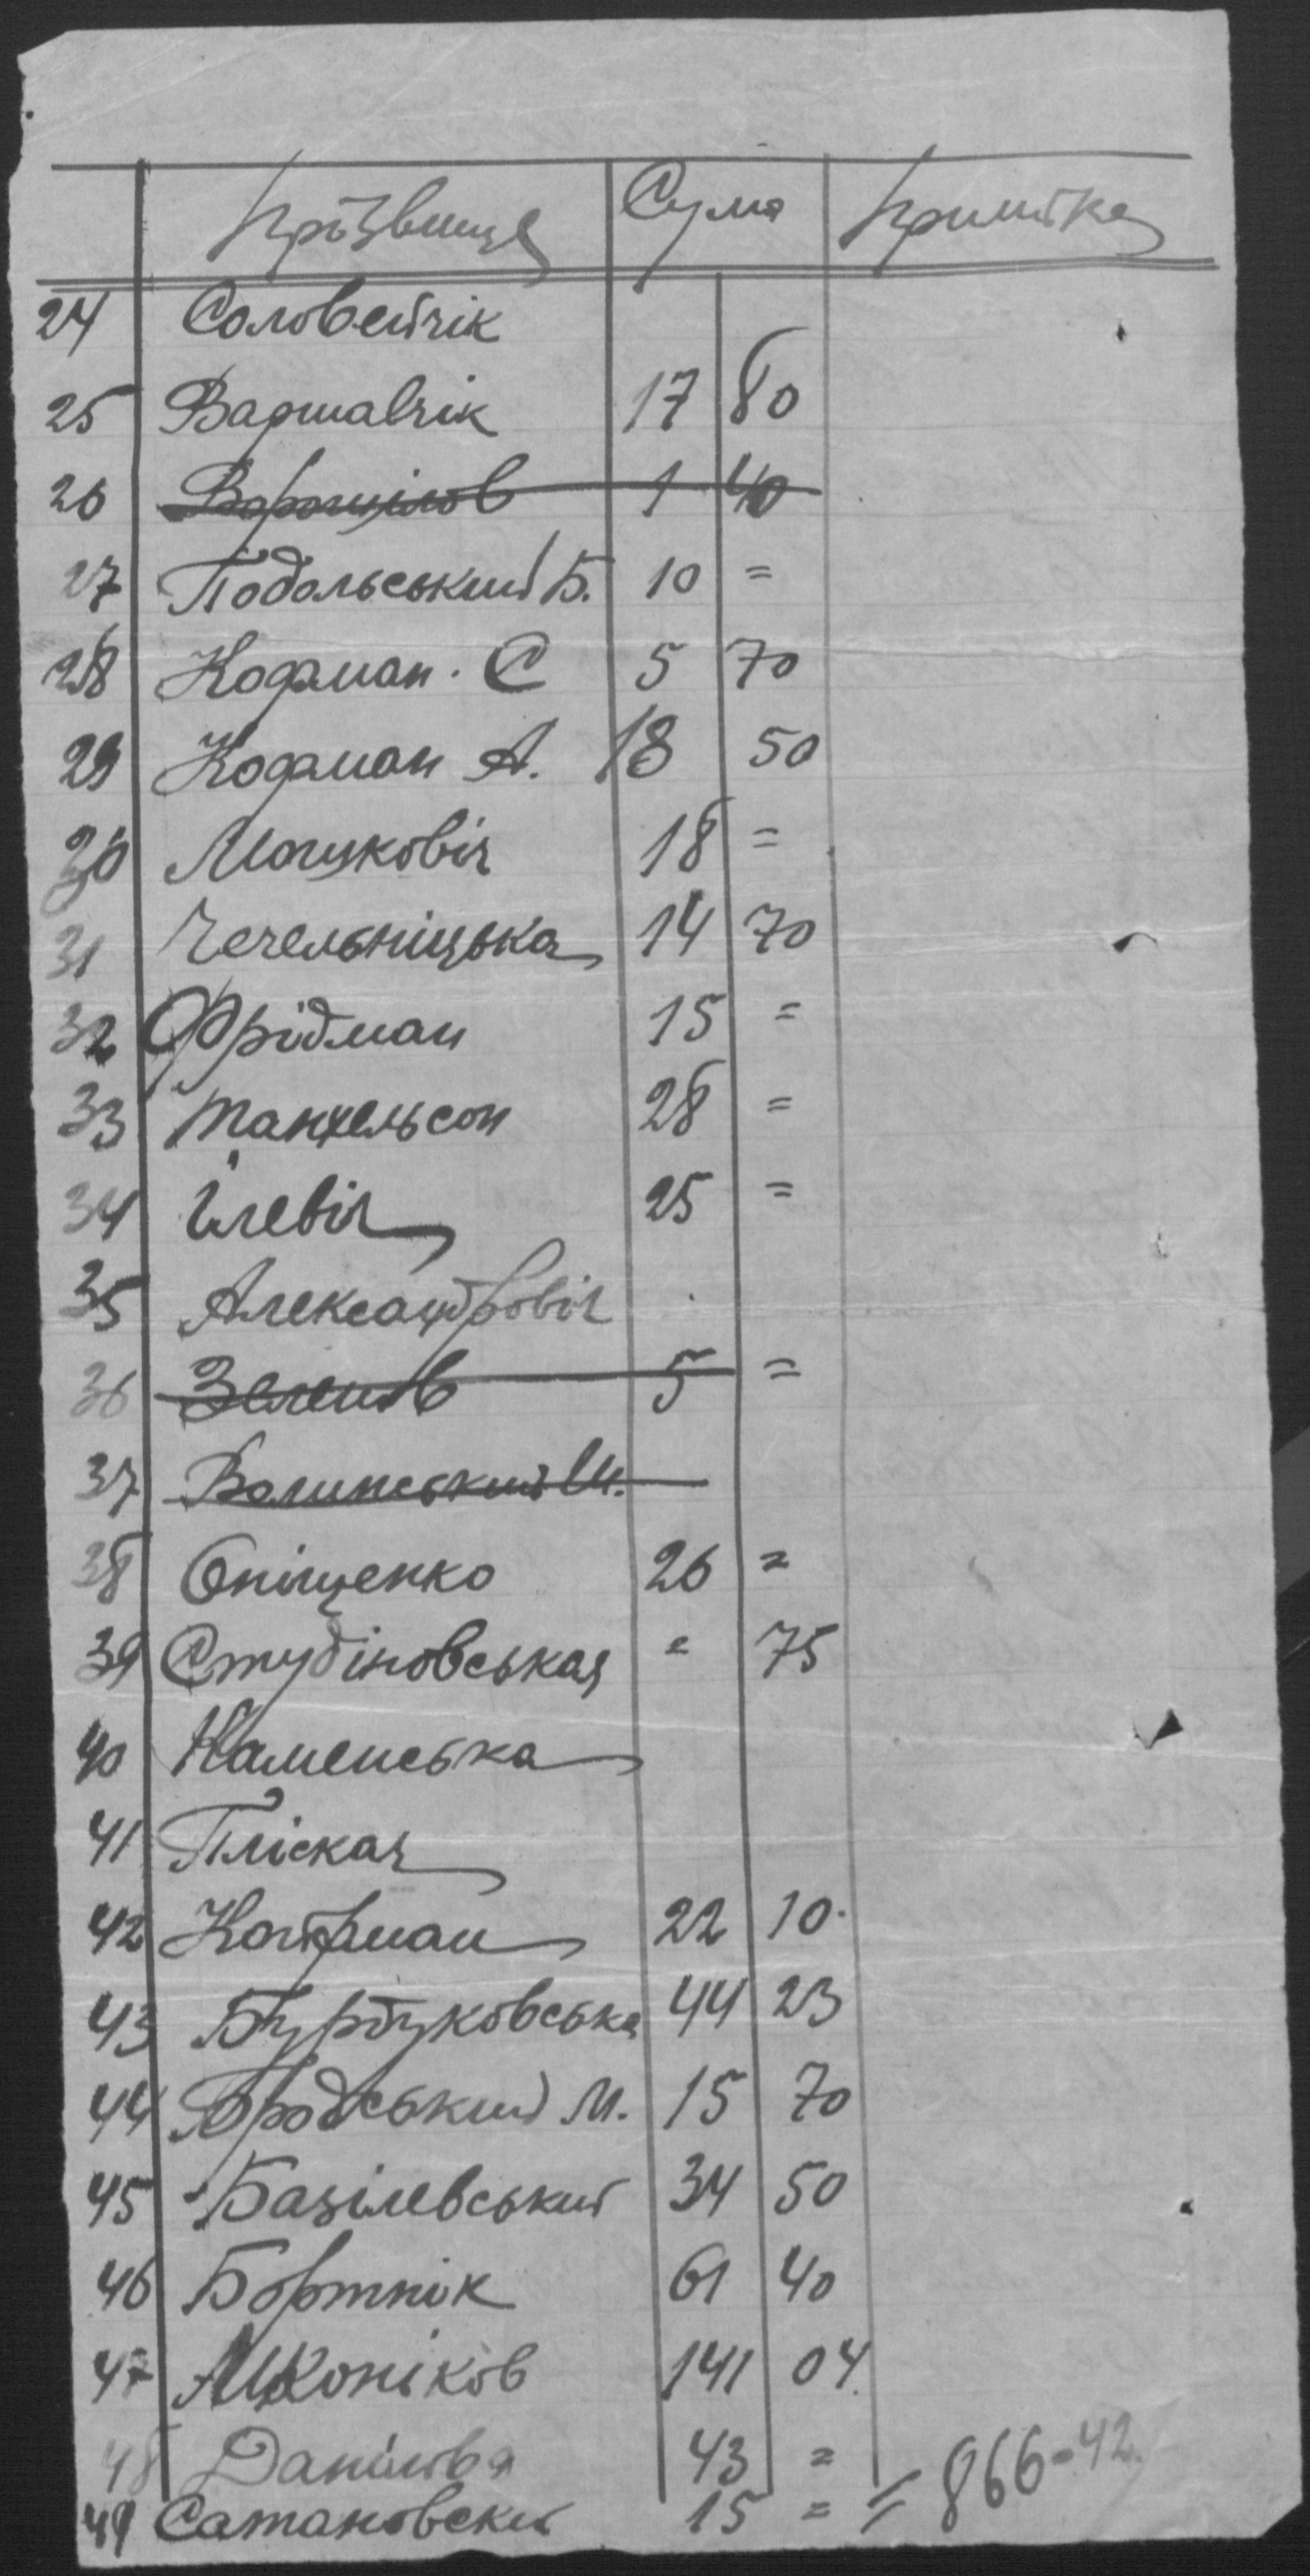 Прізвище Сума Примітка
24 Соловейчік
25 Варшавчік 17 80
26 Ворошилов 1 40
27 Подольський Б. 10 =
28 Кофман. С 5 70
29 Кофман А. 18 50
30 Мошковіч 18 =
31 Чечельніцька 14 70
32 Фрідман 15 =
33 Манхельсон 28 =
34 Ілевіч 25 =
35 Александровіч
36 Зеленов 5 =
37 Волинський Ш.
38 Оніщенко 26 =
39 Студіновськая = 75
40 Каменська
41 Пліская
42 Койфман 22 10
43 Бурбуковська 44 23
44 Бродський М. 15 70
45 Базілевський 34 50
46 Бортнік 61 40
47 Коніков 141 04
48 Данілова 43 =
49 Сатановский 15 = = 866-42